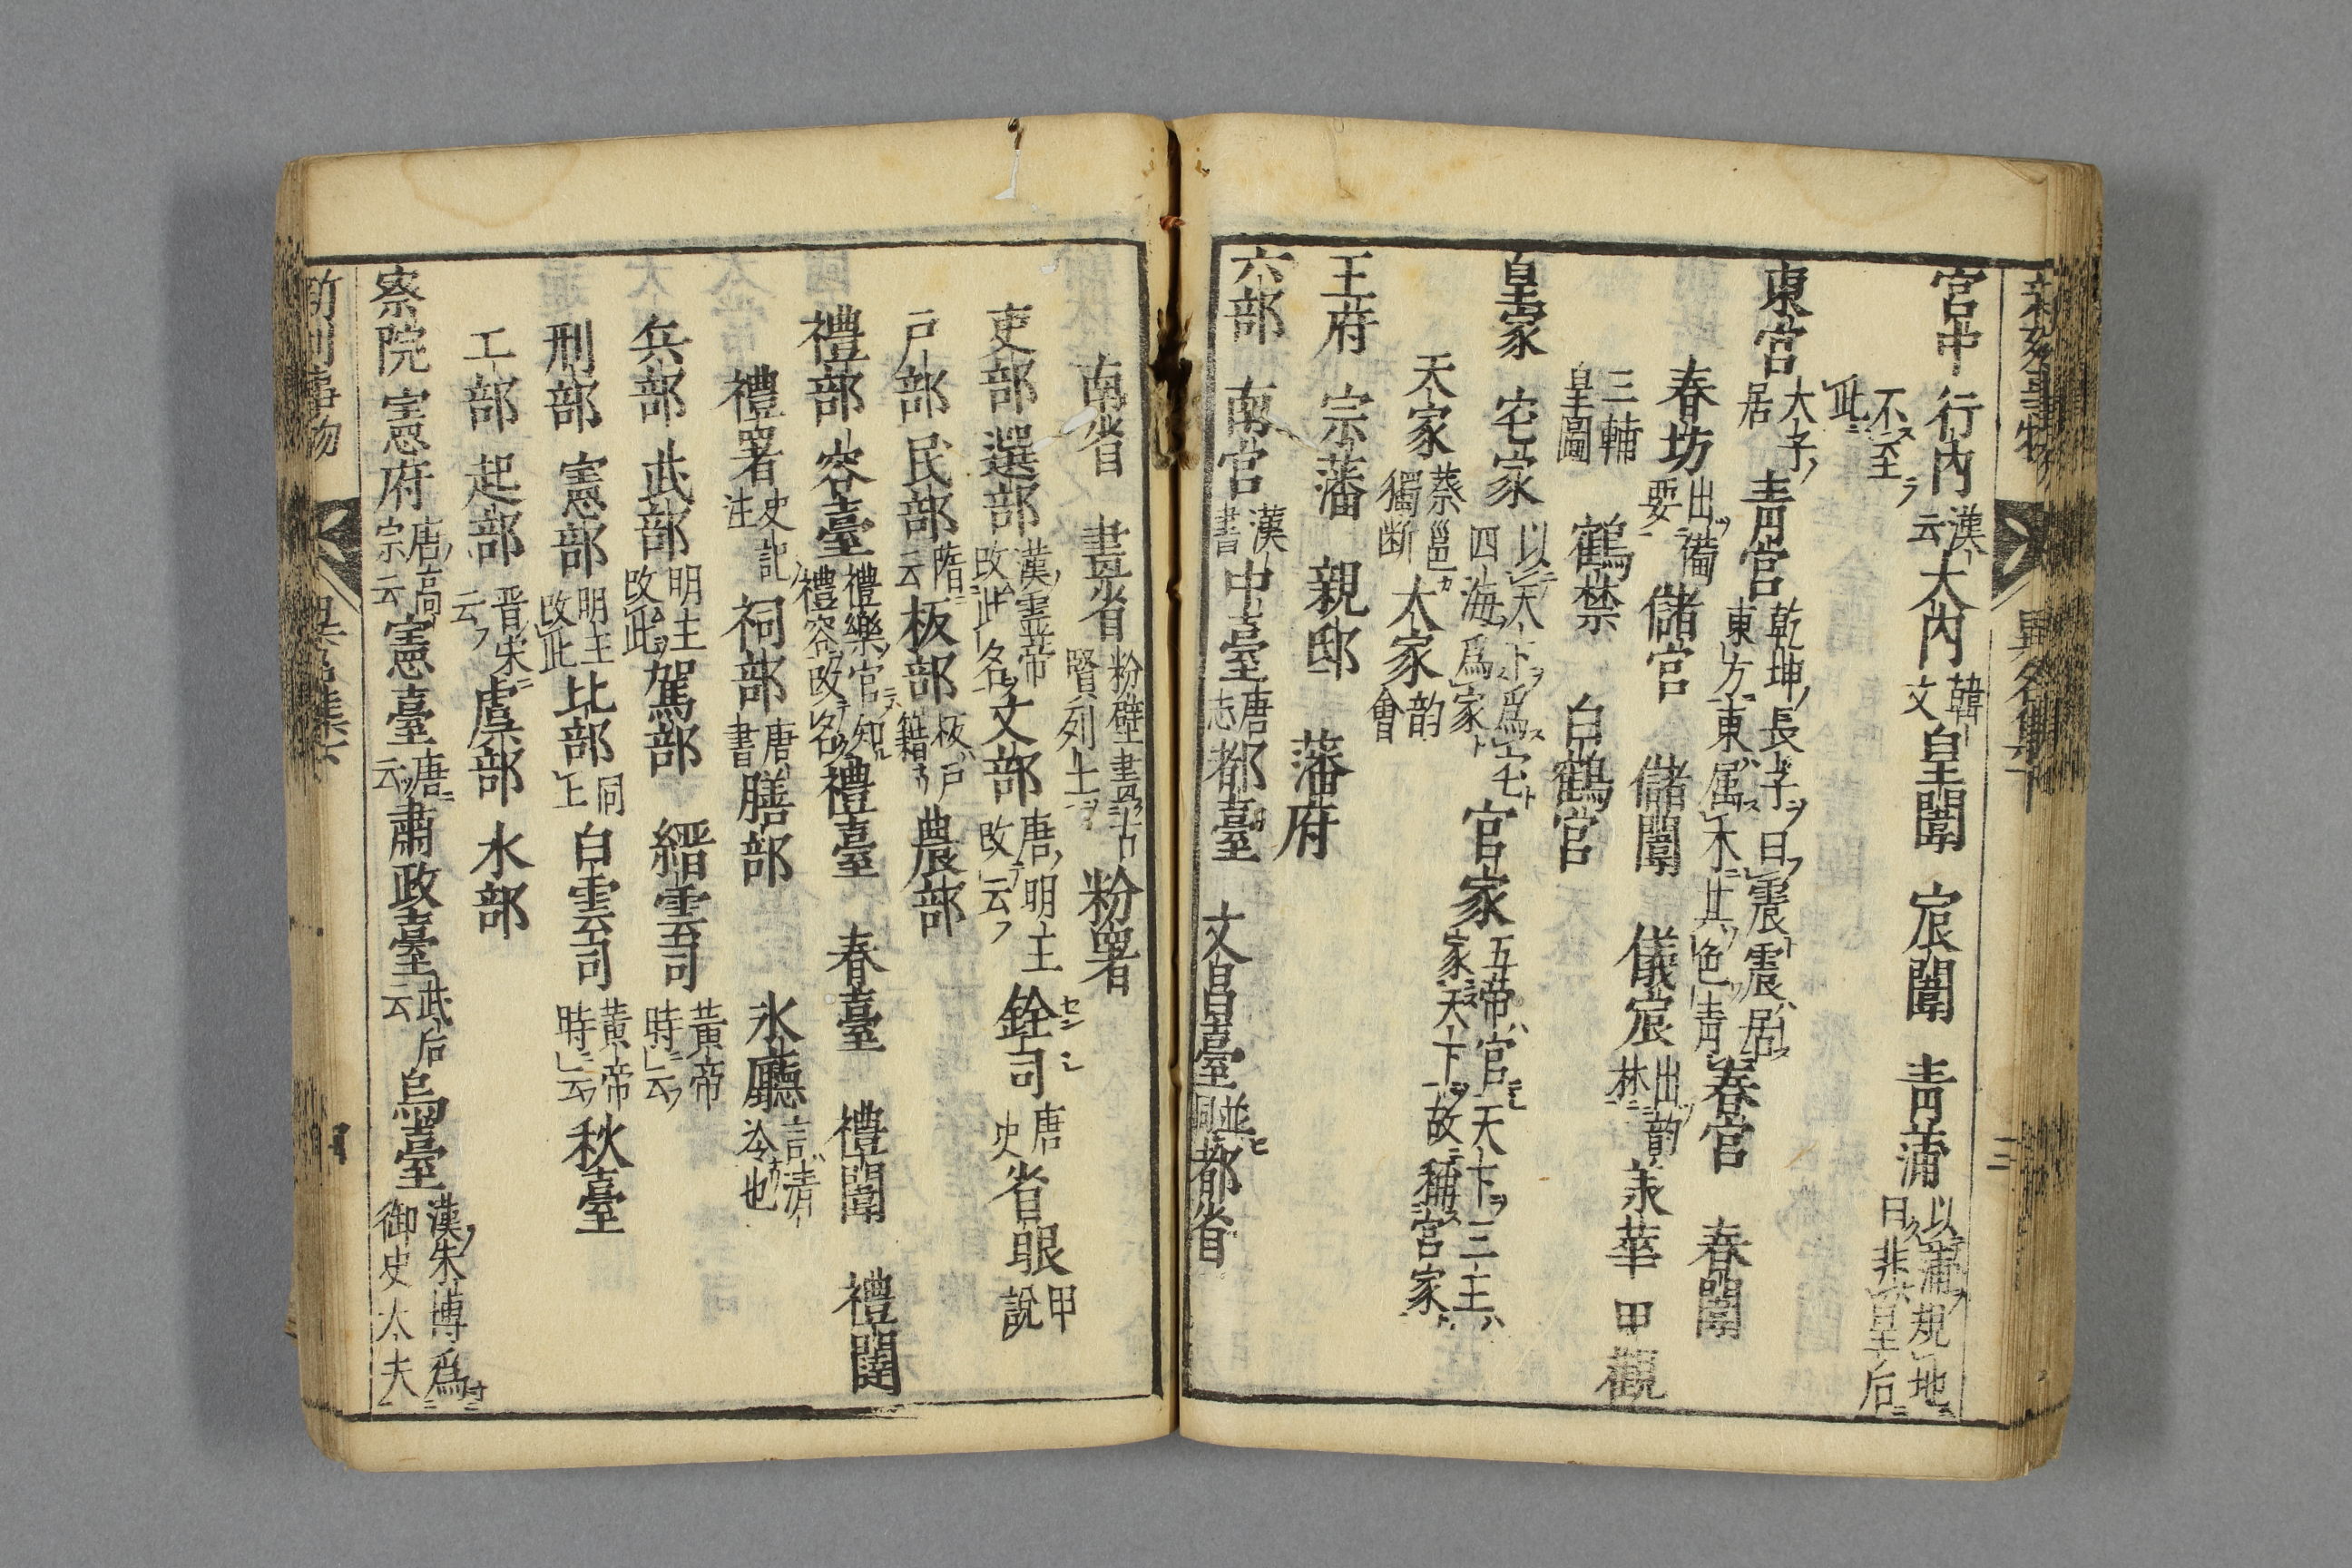 宮中 行内漢云大内韓文皇闈 宸闈 青蒲以蒲規地曰非皇后
不至此
東宮大子居青宮乾坤長子曰震震居東方東属木其色青春宮 春闈
春坊出備要儲宮 儲闈 儀宸出韵林 甲觀
三輔皇圖 鶴禁 白鶴宮
皇家 宅家以天下爲宅四海爲家官家五帝官天下三王家天下故稱官家
天家蔡邕獨断大家韵會
王府 宗藩 親邸 藩府
六部 南宮漢書中臺唐志都臺 文昌臺並同都省
南省 畫省粉壁畫古賢列士粉署
吏部 選部漢霊帝改此名文部唐明主改云銓司唐史省眼甲說
戸部 民部隋云板部板戸籍農部
禮部 容臺禮樂官知禮容改名禮臺 春臺 禮闈 禮闥
禮署史記注祠部唐書膳部 氷廳言清冷也
兵部 武部明主改此駕部 縉雲司黃帝時云
刑部 憲部明主改此比部同上白雲司黃帝時云秋臺
工部 起部晋宋云虞部 水部
察院 憲府唐高宗云憲臺唐云肅政臺武后云烏臺漢朱博爲御史大夫
異名集下
三